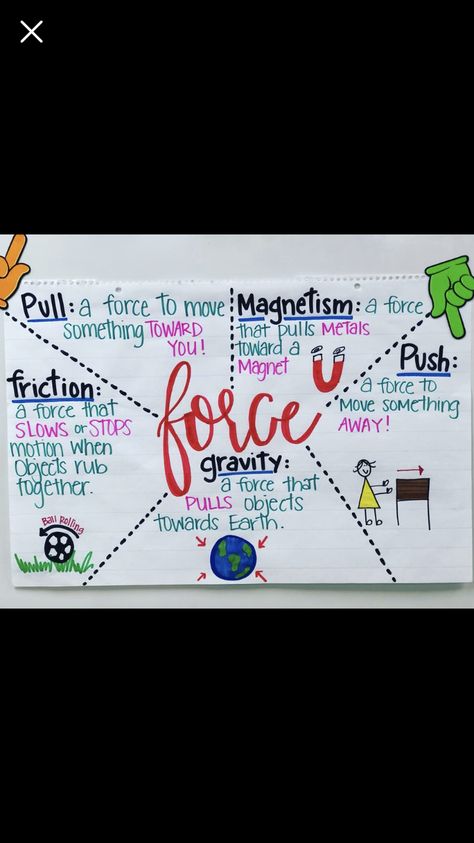 Pull: a force to move
something TOWARD
YOU!
Magnetism: a force
that pulls METALS
toward a
Magnet
Push:
a force to
Move something
AWAY!
friction:
a force that
SLOWS or STOPS
motion when
Objects rub
together.
Ball rolling
force
gravity:
a force that
PULLS objects
towards Earth.